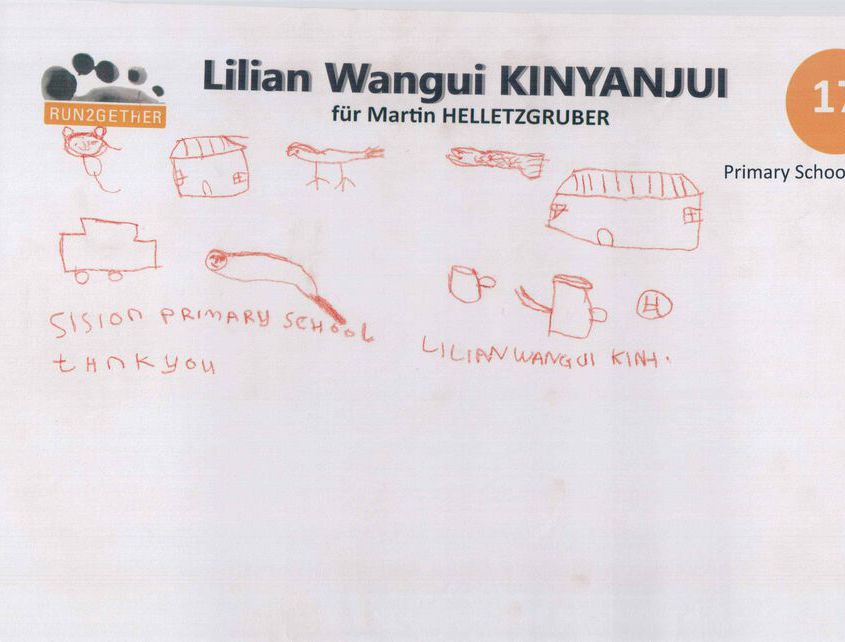 Lilian Wangui KINYANJUI
für Martin HELLETZGRUBER
RUN2GETHER
17
Primary Schoo
SISION PRIMARY SCHOOL
tHnKyou
LILIAN WANGUI KINH.
4